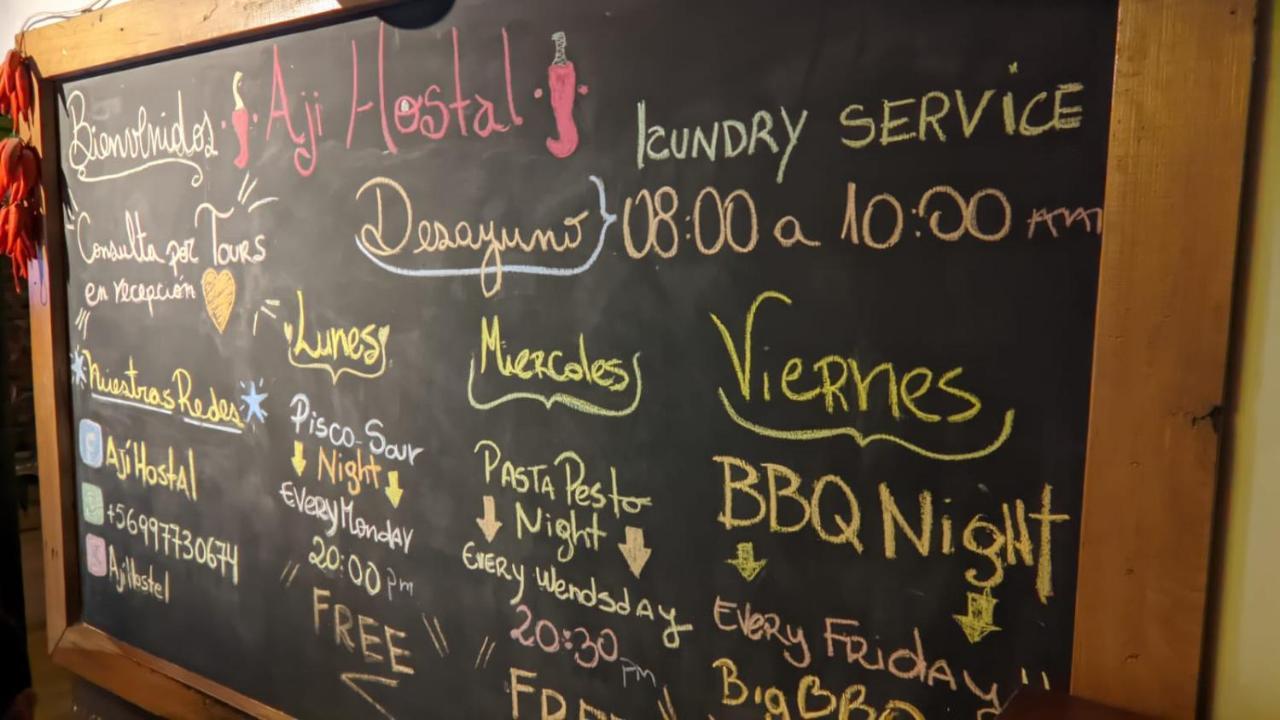 Bienvenidos Aji Hostal
LCUNDRY SERVICE
Desayuno 08:00 a 10:00 AM
Consulta por Tours
en recepción
Nuestras Redes
Ají Hostal
+56997730674
AjiHostel
Lunes
Pisco-Sour
Night
Every Monday
20:00 pm
FREE
Miercoles
Pasta Pesto
Night
Every Wendsday
20:30 pm
FREE
Viernes
BBQ Night
Every Friday
Big BBQ